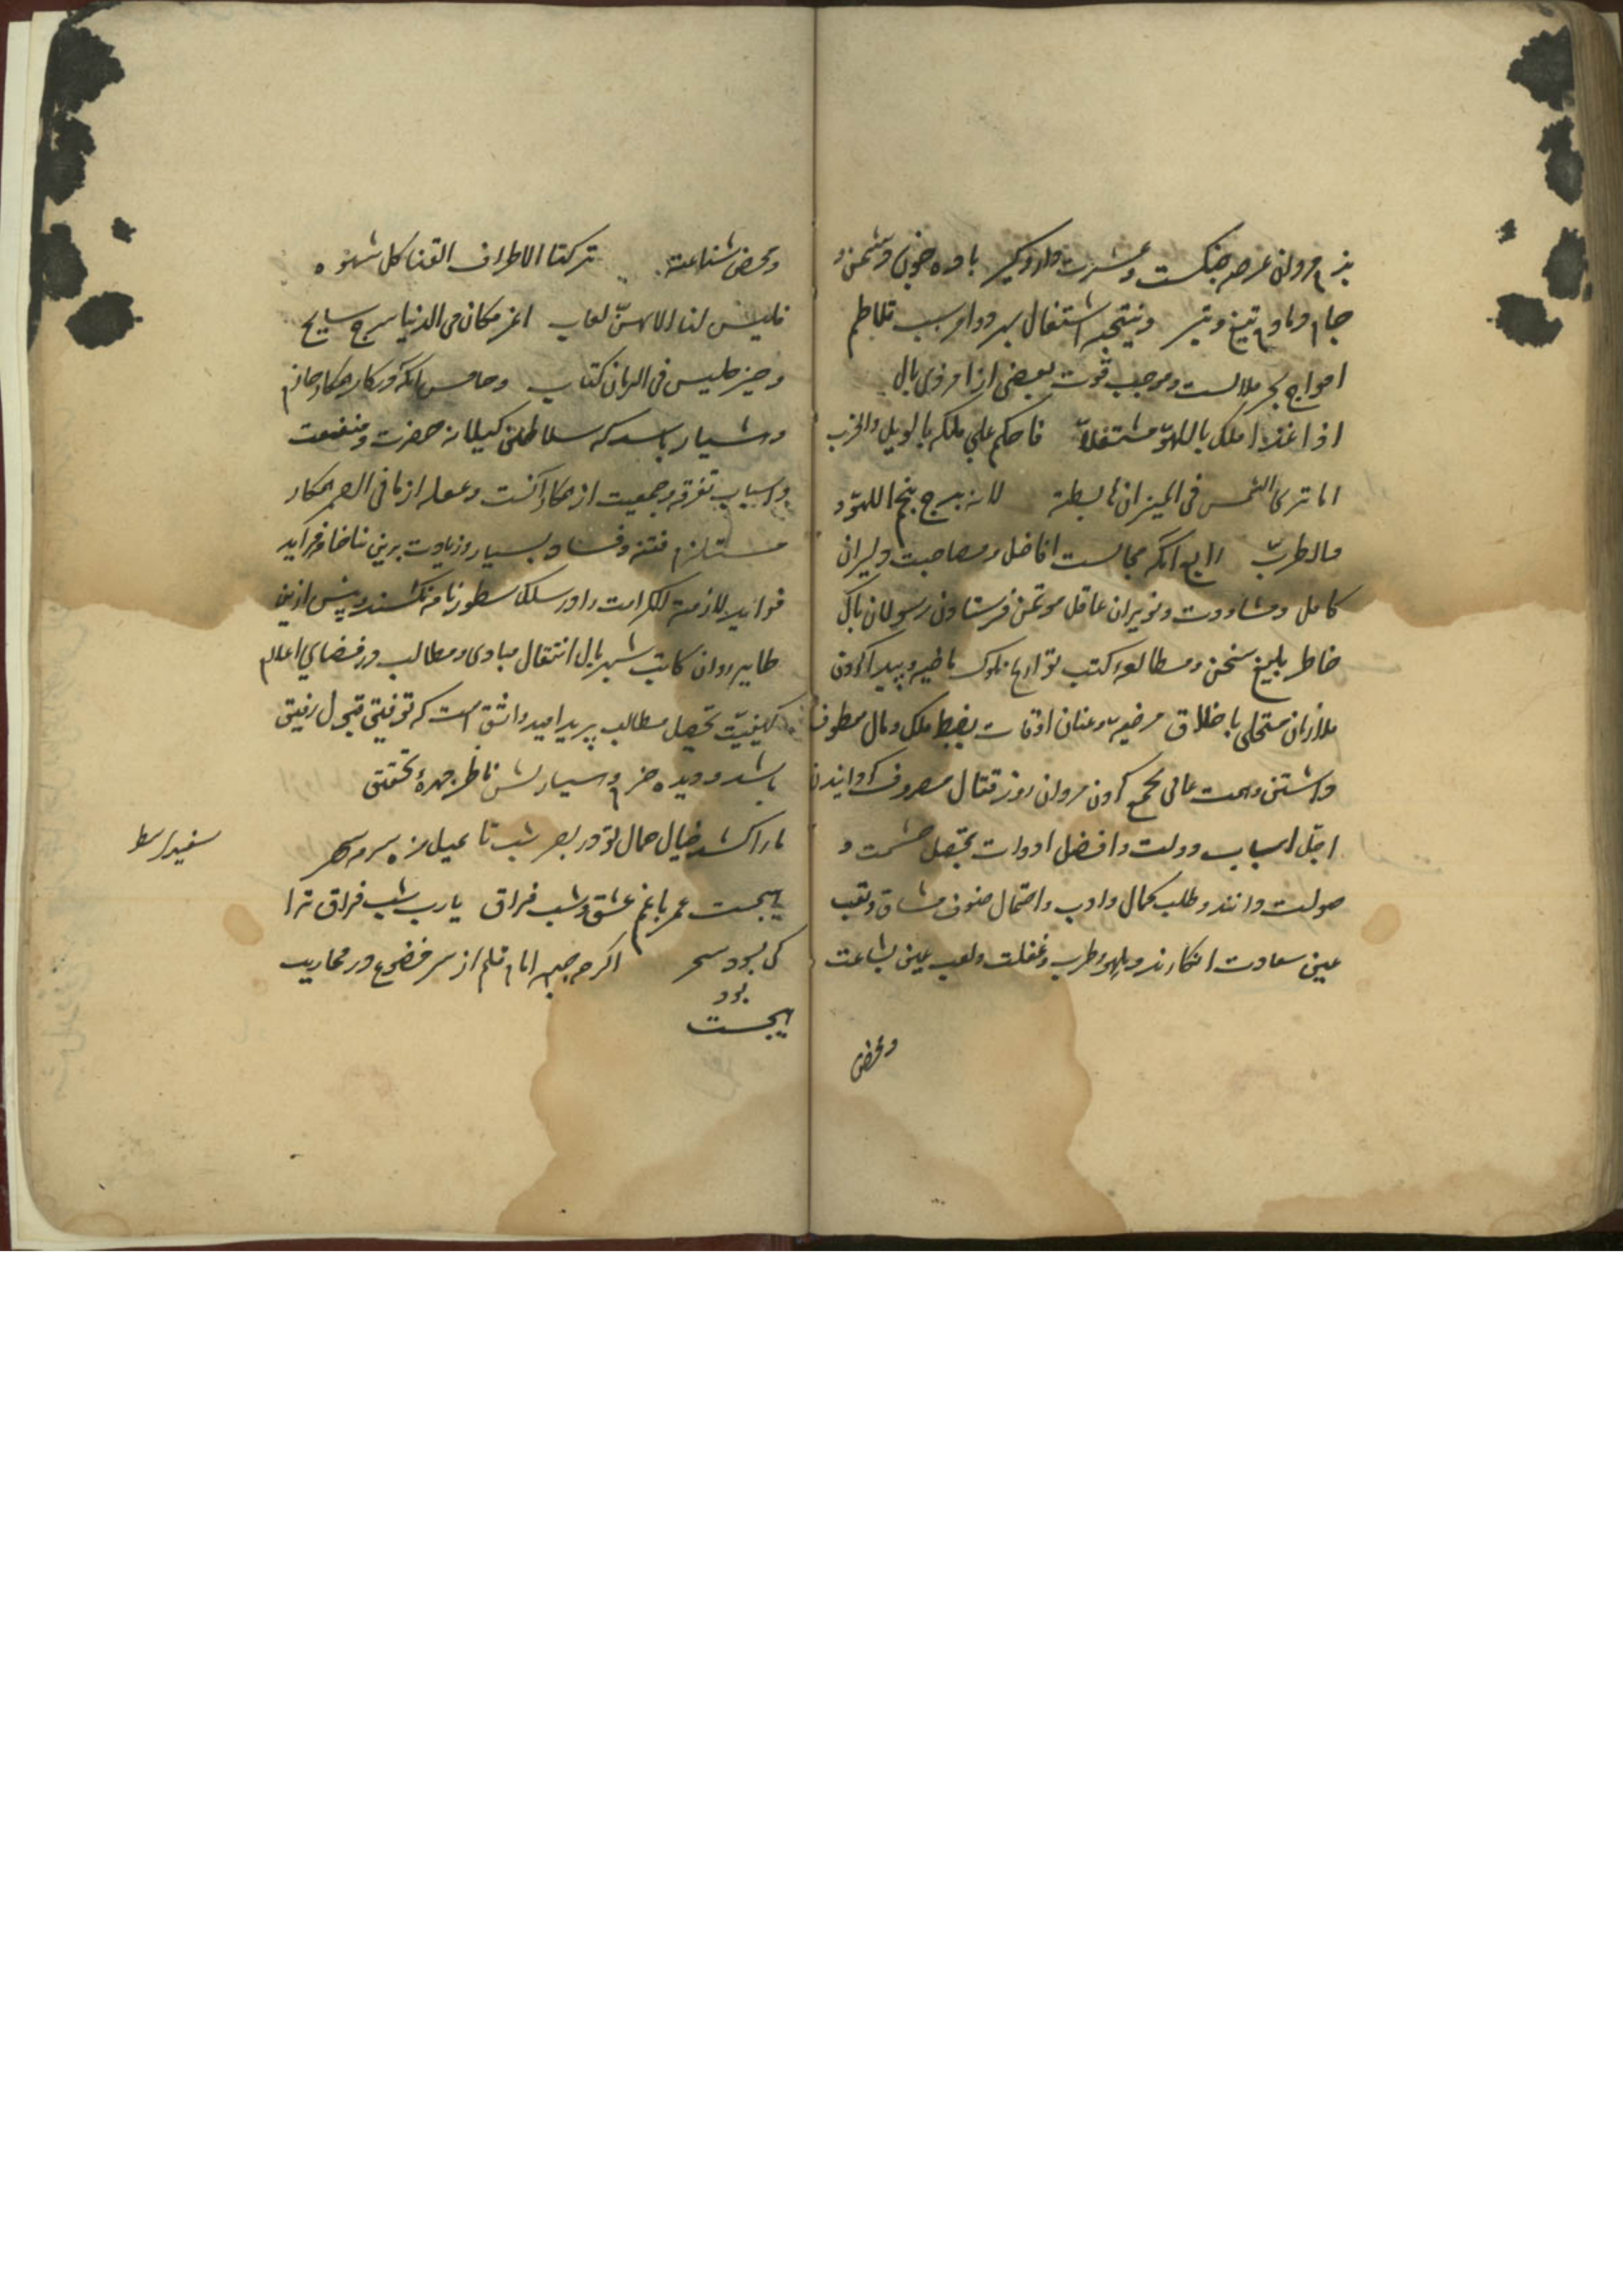 بزم مردان عرصه جنکست و عشرت دار و کیر باده خون دشمن و
جام دمادم تیغ و تیر ونتیجه اشتغال بسرود او سبب تلاطم
امواج بحر ملالست وموجب قوت بعضی از امر ذی بال
اذا غدا ملک باللهو مشتغلا فاحکم علی ملکه بالویل والخرب
اما تری الشمس فی المیزان هابطة لانه برج نجم اللهو و
والطرب رابع آنکه مجالست افاضل و مصاحبت دلیران
کامل ومشاورت وزیران عاقل موتمن فرستادن رسولان پاک
خاطر بلیغ سخن ومطالعه کتب تواریخ ملوک ماضیه وپیدا کردن
ملازمان متحلی باخلاق مرضیه وعنان اوقات بضبط ملک ومال معطوف
داشتن وهمت عالی بجمع کردن مردان روز قتال مصروف کردانیدن
اجل اسباب دولت وافضل ادوات تحصیل حشمت و
صولت دانند وطلب کمال وادب واحتمال صنوف مشاق وتعب
عین سعادت انکارند ولهو وطرب وغفلت ولعب عین بشاعت
ومحض
ومحض شناعة ترکنا لاطراف القنا کل شهوه
فلیس لنا الا بهن لعاب اعز مکان فی الدنیا سرج سابح
وخیر جلیس فی الزمان کتاب وخامس آنکه در کار حکام جانم
هشیار باشد که سلاطین کیلان مضرت ومنفعت
واسباب تفرقه وجمعیت از حکام آنست وعمله از ما فی الضمیر حکام
مستلزم فتنه وفساد بسیار وزیادت برین تا خام فراید
فواید لازمة الکرامت را در سلک سطور نامه نکشند وپیش ازین
طایر روان کاتب شهربال انتقال مبادی ومطالب در فضای اعلام
کیفیت تحصیل مطالب پرید امید واثق است که توفیق قبول رفیق
باشد ودیده حزم وسیارتش ناظر چهره تحقیق
ما را کشد خیال جمال تو در بصر شب تا بمیل زهره سرمه سحر
سفیدار سط
بیجست عمر با غم عشق وشب فراق یارب شب فراق ترا
کی بود سحر اکرچه جبهه امام قلم از سر خضوع در محاریب
بود
بیجست